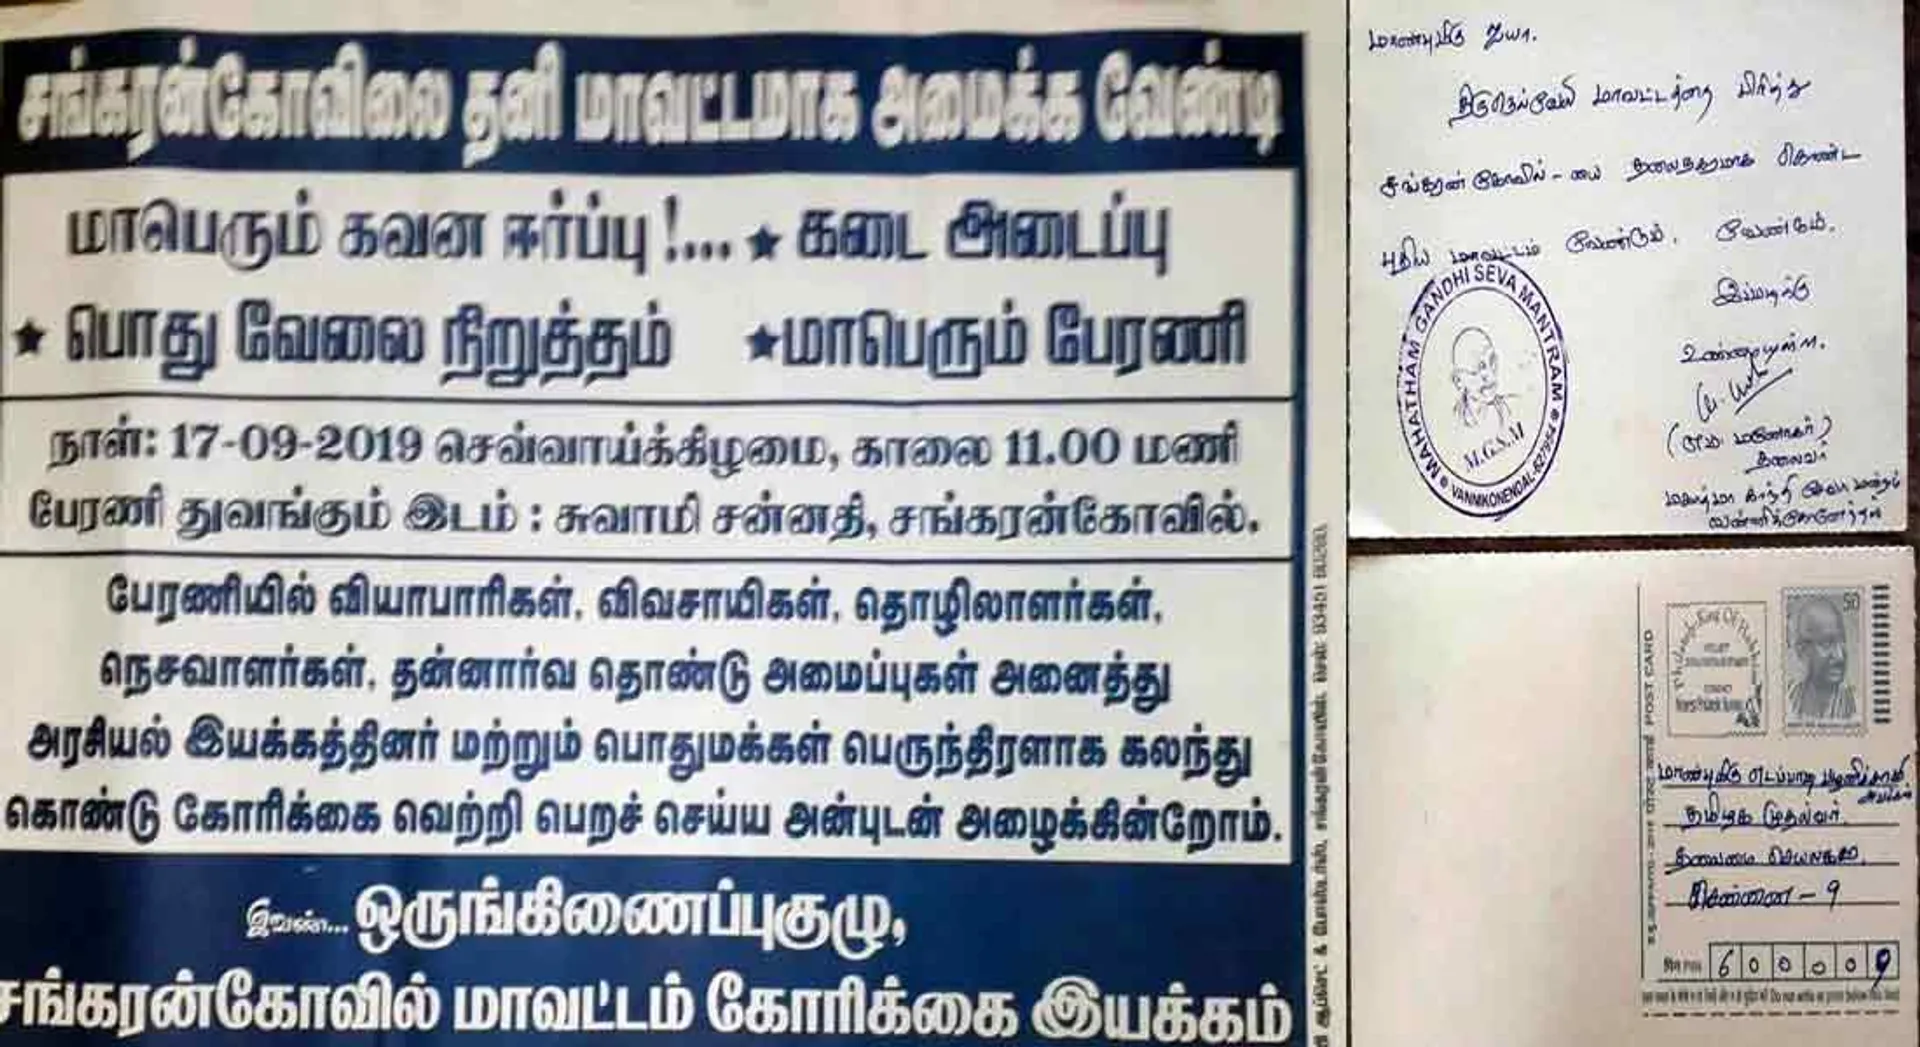 சங்கரன்கோவிலை தனி மாவட்டமாக அமைக்க வேண்டி
மாபெரும் கவன ஈர்ப்பு !... ★ கடை அடைப்பு
★ பொது வேலை நிறுத்தம் ★மாபெரும் பேரணி
நாள்: 17-09-2019 செவ்வாய்க்கிழமை, காலை 11.00 மணி
பேரணி துவங்கும் இடம் : சுவாமி சன்னதி, சங்கரன்கோவில்.
பேரணியில் வியாபாரிகள், விவசாயிகள், தொழிலாளர்கள்,
நெசவாளர்கள், தன்னார்வ தொண்டு அமைப்புகள் அனைத்து
அரசியல் இயக்கத்தினர் மற்றும் பொதுமக்கள் பெருந்திரளாக கலந்து
கொண்டு கோரிக்கை வெற்றி பெறச் செய்ய அன்புடன் அழைக்கின்றோம்.
இவண்... ஒருங்கிணைப்புகுழு,
சங்கரன்கோவில் மாவட்டம் கோரிக்கை இயக்கம்
மாண்புமிகு ஐயா.
திருநெல்வேலி மாவட்டத்தை பிரித்து
சங்கரன்கோவில் - யை தலைநகரமாக கொண்ட
புதிய மாவட்டம் வேண்டும். வேண்டும்.
இப்படிக்கு
உண்மையுள்ள.
MAHATHAM GANDHI SEVA MANTRAM
M.G.S.M
VANNIKONENDAL-627954
மனோகர்)
தலைவர்
மகாத்மா காந்தி சேவா மன்றம்
வண்ணிக்கோனேந்தல்
POST CARD
50
மாண்புமிகு எடப்பாடி பழனிச்சாமி
அவர்கள்
தமிழக முதல்வர்.
தலைமை செயலகம்,
சென்னை - 9
600009